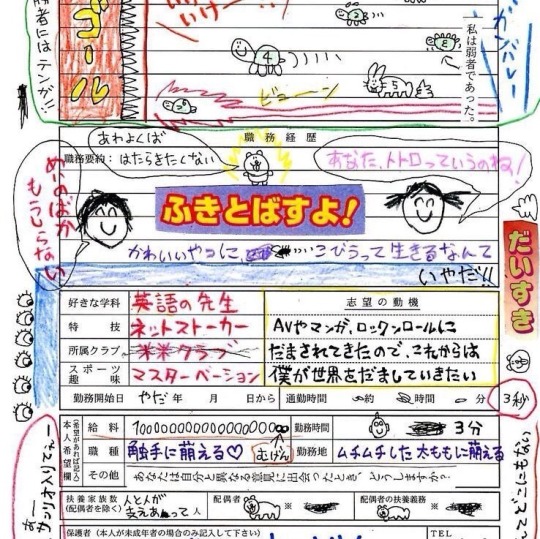 勝者にはテンガ!!
ゴール
いけー!!
ガンバレー
4
私は弱者であった。
ビューン
職務経歴
あわよくば
職務要約:はたらきたくない
あなた、トトロっていうのね!
めいのばか
もうしらない
ふきとばすよ!
だいすき
かわいいやつに、
こびうって生きるなんて
いやだ!!
好きな学科 英語の先生
特技 ネットストーカー
所属クラブ
スポーツ
趣味 マスターベーション
志望の動機
AVやマンガ、ロックンロールに
だまされてきたので、これからは
僕が世界をだましていきたい
勤務開始日 やだ 年 月 日から
通勤時間 約 時間 分
3秒
本人希望欄
(希望があれば記入)
給料
むげん
勤務時間 3分
職種 触手に萌える♡
勤務地 ムチムチした太ももに萌える
その他 あなたは自分と異なる意見に出会ったとき、どうしますか?
扶養家族数
(配偶者を除く)
人と人が
支えあって人
配偶者 ※
配偶者の扶養義務 ※
保護者(本人が未成年者の場合のみ記入して下さい)
TEL